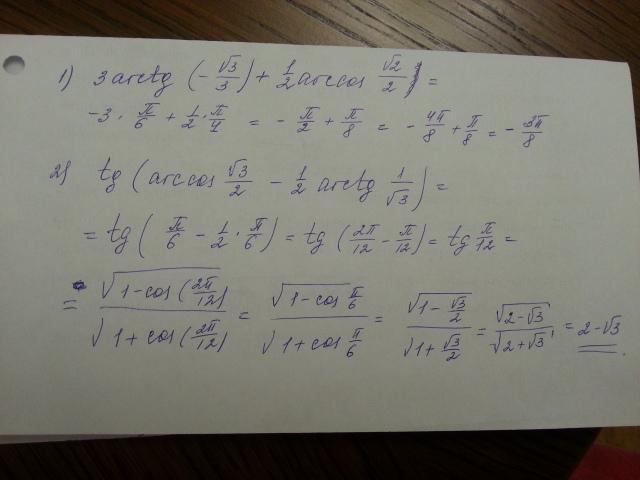 1) 3 arctg (-√3/3) + 1/2 arccos √2/2 =
-3 · π/6 + 1/2 · π/4 = - π/2 + π/8 = - 4π/8 + π/8 = - 3π/8
2) tg (arccos √3/2 - 1/2 arctg 1/√3) =
= tg (π/6 - 1/2 · π/6) = tg (2π/12 - π/12) = tg π/12 =
= √(1-cos(2π/12))/√(1+cos(2π/12)) = √(1-cos π/6)/√(1+cos π/6) = √(1-√3/2)/√(1+√3/2) = √(2-√3)/√(2+√3) = 2-√3.